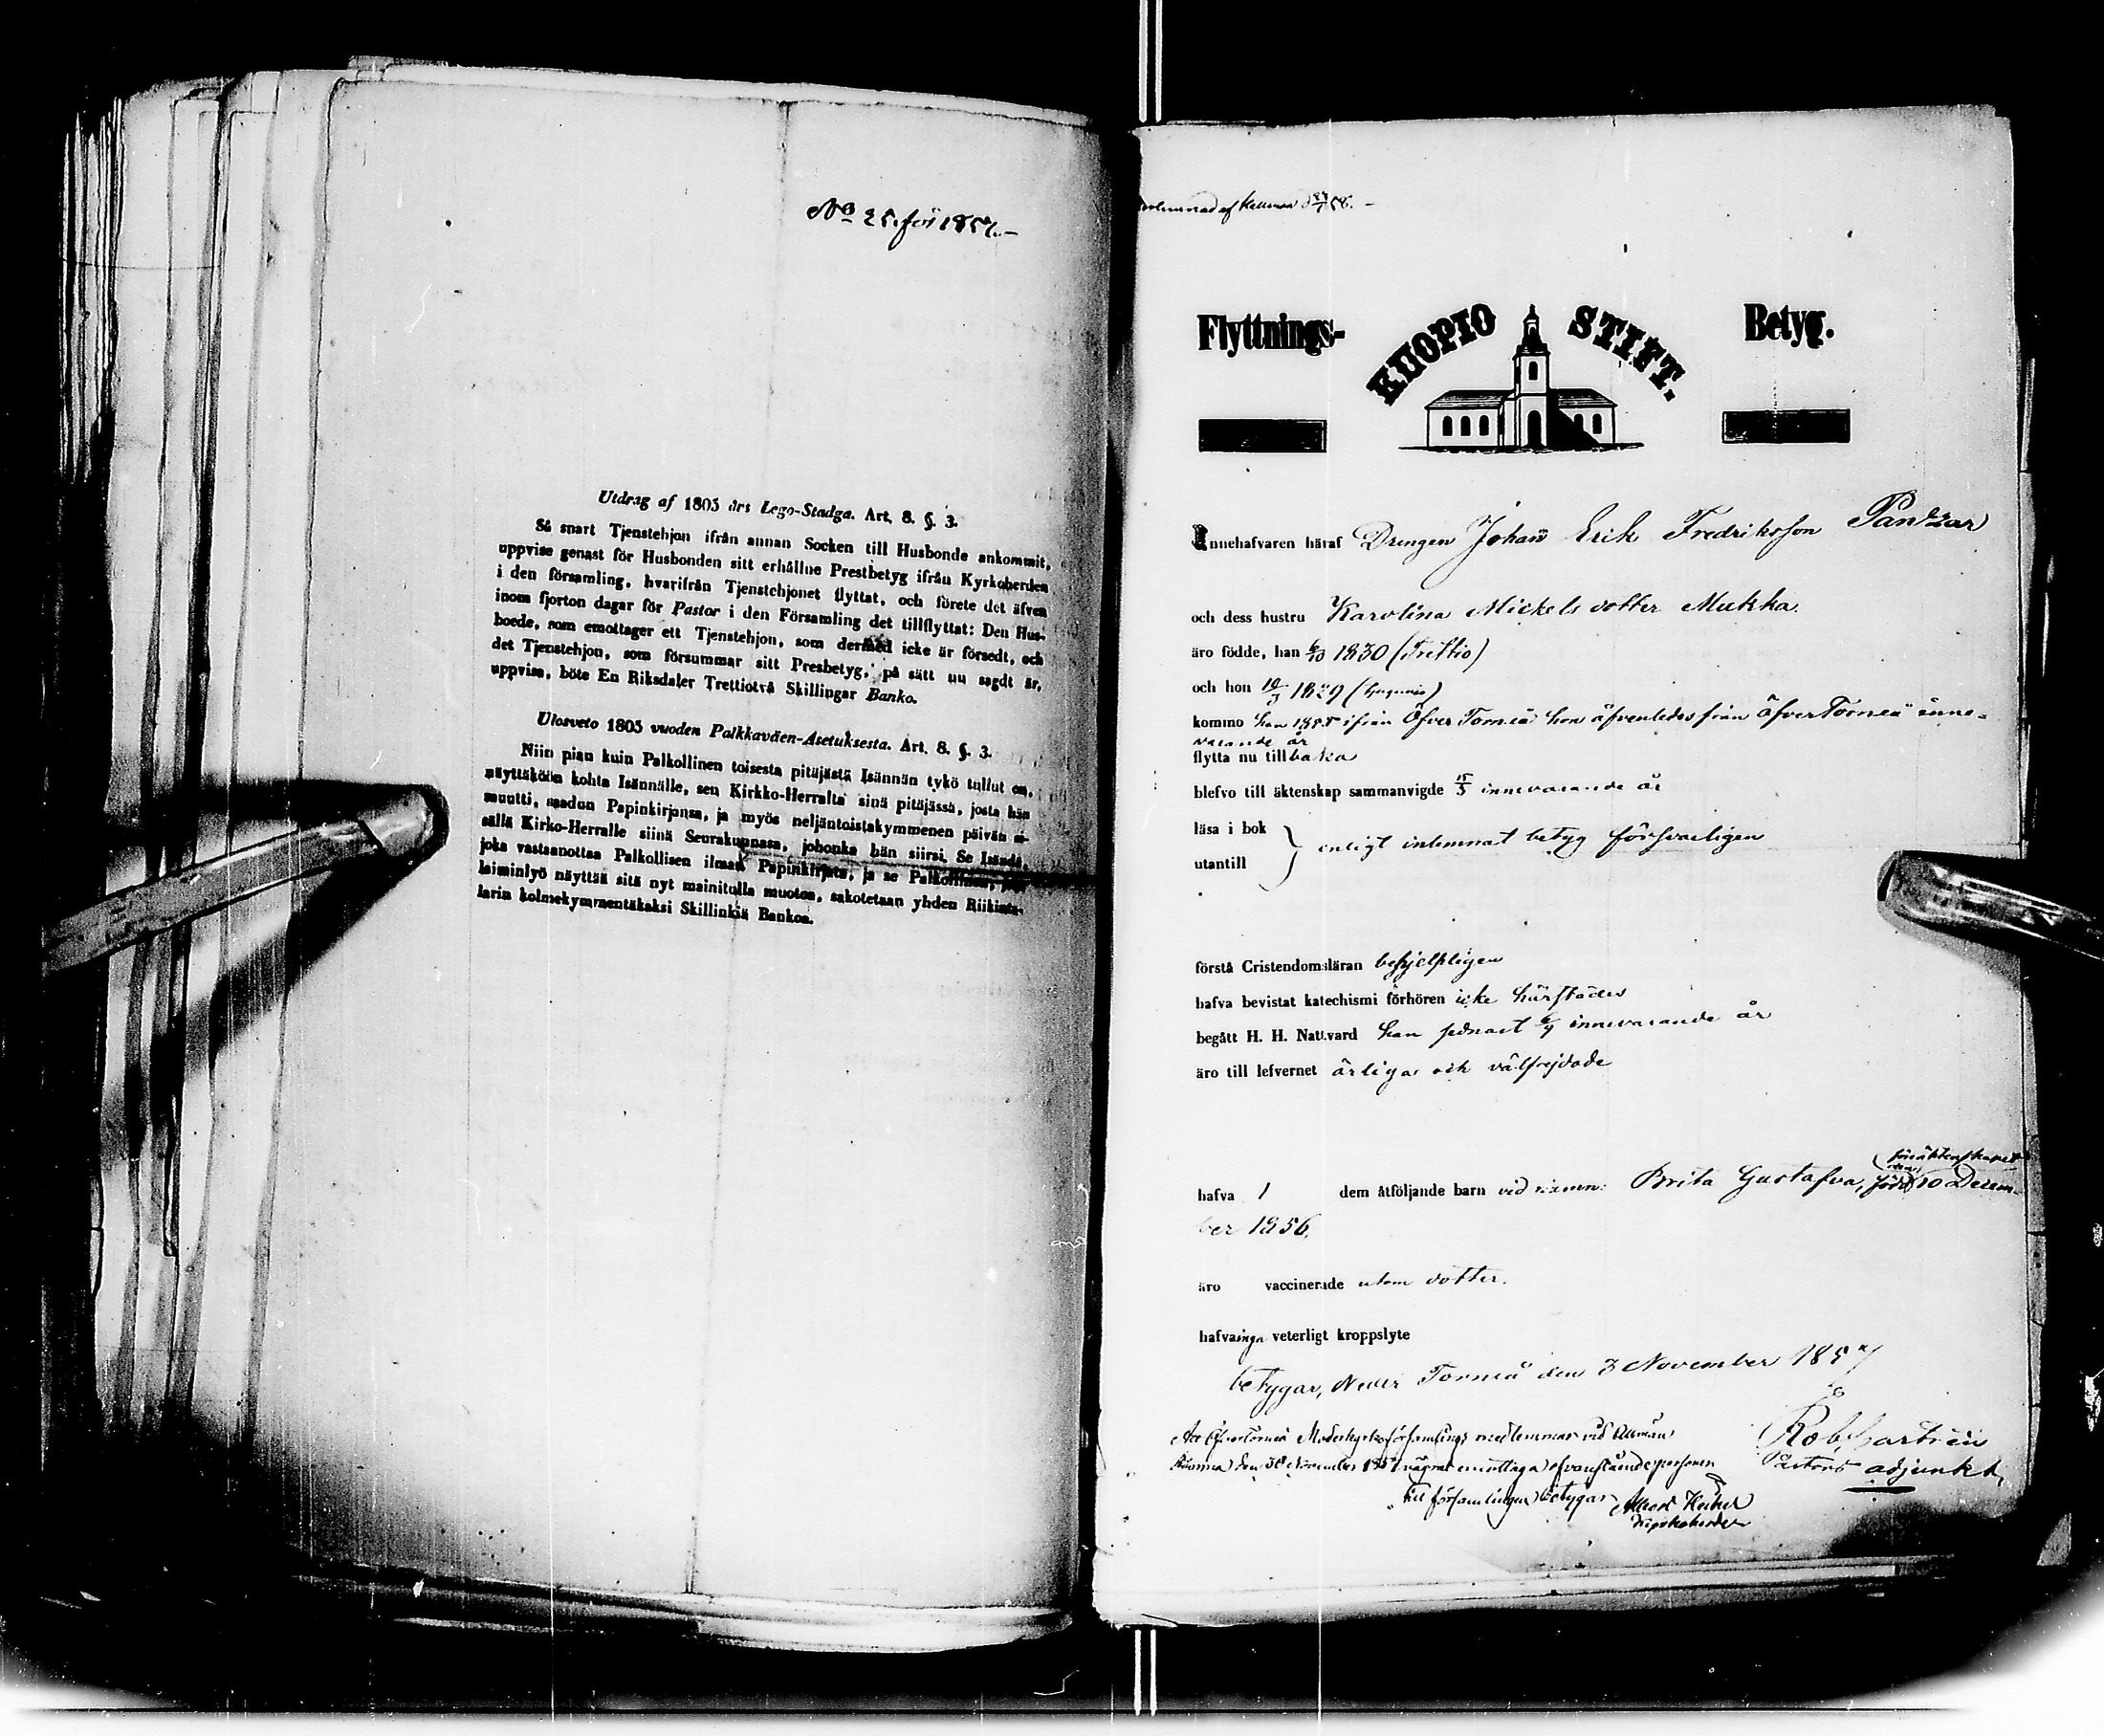 No 25. för 1857.
Utdrag af 1805 års Lego-Stadga. Art. 8. §. 3.
Så snart Tjenstehjon ifrån annan Socken till Husbonde ankommit,
uppvise genast för Husbonden sitt erhållne Prestbetyg ifrån Kyrkoherden
i den församling, hvarifrån Tjenstehjonet flyttat, och förete det äfven
inom fjorton dagar för Pastor i den Församling det tillflyttat: Den Hus-
boede, som emottager ett Tjenstehjon, som dermed icke är försedt, och
det Tjenstehjon, som försummar sitt Presbetyg, på sätt nu sagdt är,
uppvisa, böte En Riksdaler Trettiotvå Skillingar Banko.
Ulosveto 1805 vuoden Palkkaväen-Asetuksesta. Art. 8. §. 3.
Niin pian kuin Palkollinen toisesta pitäjästä Isännän tykö tullut on,
näyttäköön kohta Isännälle, sen Kirkko-Herralta sinä pitäjässä, josta hän
muutti, saadun Papinkirjansa, ja myös neljäntoistakymmenen päivän si-
sällä Kirko-Herralle siinä Seurakunnasa, johonka hän siirsi. Se Isändä,
joka vastaanottaa Palkollisen ilman Papinkirjata, ja se Palkollinen,
laiminlyö näyttää sitä nyt mainitulla muoton, sakotetaan yhden Riikinta-
larin kolmekymmentäkaksi Skillinkiä Bankoa.
af
Flyttnings- KUOPIO STIFT. Betyg.
Innehafvaren häraf Drengen Johan Erik Fredriksson Pantzar
och dess hustru Karolina Mickelsdotter Mukka.
äro födde, han 6/10 1830 (Trettio)
och hon 10/3 1829 (tjugunio)
komne han 1855 ifrån Öfver Torneå hon äfvenledes från Öfver Torneå inne-
varande år
flytta nu tillbaka
blefvo till äktenskap sammanvigde 15/5 innevarande år
läsa i bok
utantill } enligt inlemnat betyg försvarligen
förstå Cristendomsläran behjelpligen
hafva bevistat katechismi förhören icke härstädes
begått H. H. Nattvard han sednast 6/9 innevarande år
äro till lefvernet ärliga och välfrejdade
föräktenskapet
hafva 1 dem åtföljande barn vid namn: Brita Gustafva, född 10 Decem-
ber 1856.
äro vaccinerade utom dotter.
hafva inga veterligt kroppslyte
betygar, Neder Torneå den 3 November 1857
Att Öfvertorneå Moderkyrkoförsamlings medlemmar vid Allmän
Rob.
den 30 November 1857 emottaga ofvanstående personer
Pastors adjunkt,
till församlingen betygar Albert Heikel
Kyrkoherde